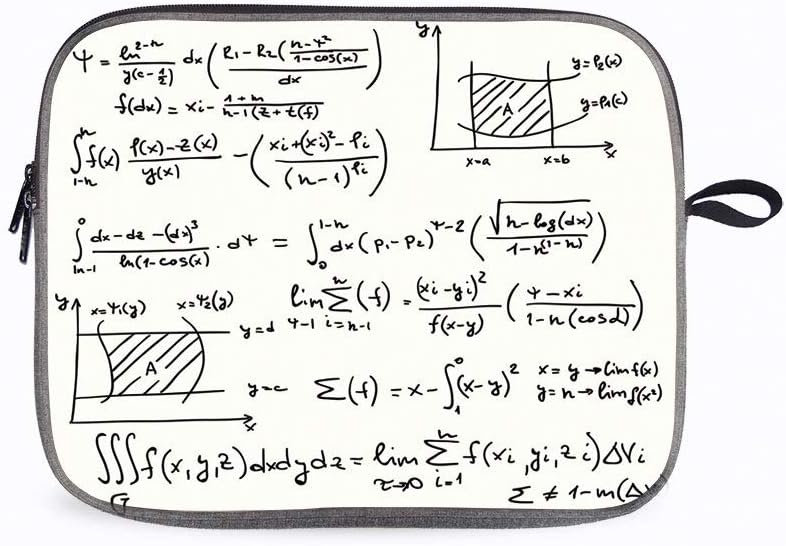 Ψ = ln^(2-n) / y(c - 1/2) dx ( R1 - R2 ( (n-Ψ^2) / (1-cos(x)) ) / dx )
f(dx) = xi - (1+m) / (n-1(z+t(f)
∫_(1-n)^n f(x) (f(x)-z(x)) / y(x) - ( (xi+(xi)^2-li) / (n-1)^li )
y
y=f2(x)
A
y=f1(c)
x=a x=b x
∫_(ln-1)^0 (dx-dz-(dx)^3) / (ln(1-cos(x)) · dΨ = ∫_0^(1-n) dx (p1-p2)^(Ψ-2) ( √(n-log(dx)) / (1-n^(1-n)) )
lim_(Ψ-1) Σ_(i=n-1)^n (f) = (xi-yi)^2 / f(x-y) ( (Ψ-xi) / (1-n(cosd) )
y
x=Ψ1(y) x=Ψ2(y)
y=d
A
y=c
x
Σ(f) = x - ∫_1^0 (x-y)^2
x = y → lim f(x)
y = n → lim f(x^2)
∭_G f(x,y,z)dxdydz = lim_(τ→0) Σ_(i=1)^n f(xi,yi,zi)ΔVi
Σ ≠ 1-m(Δ